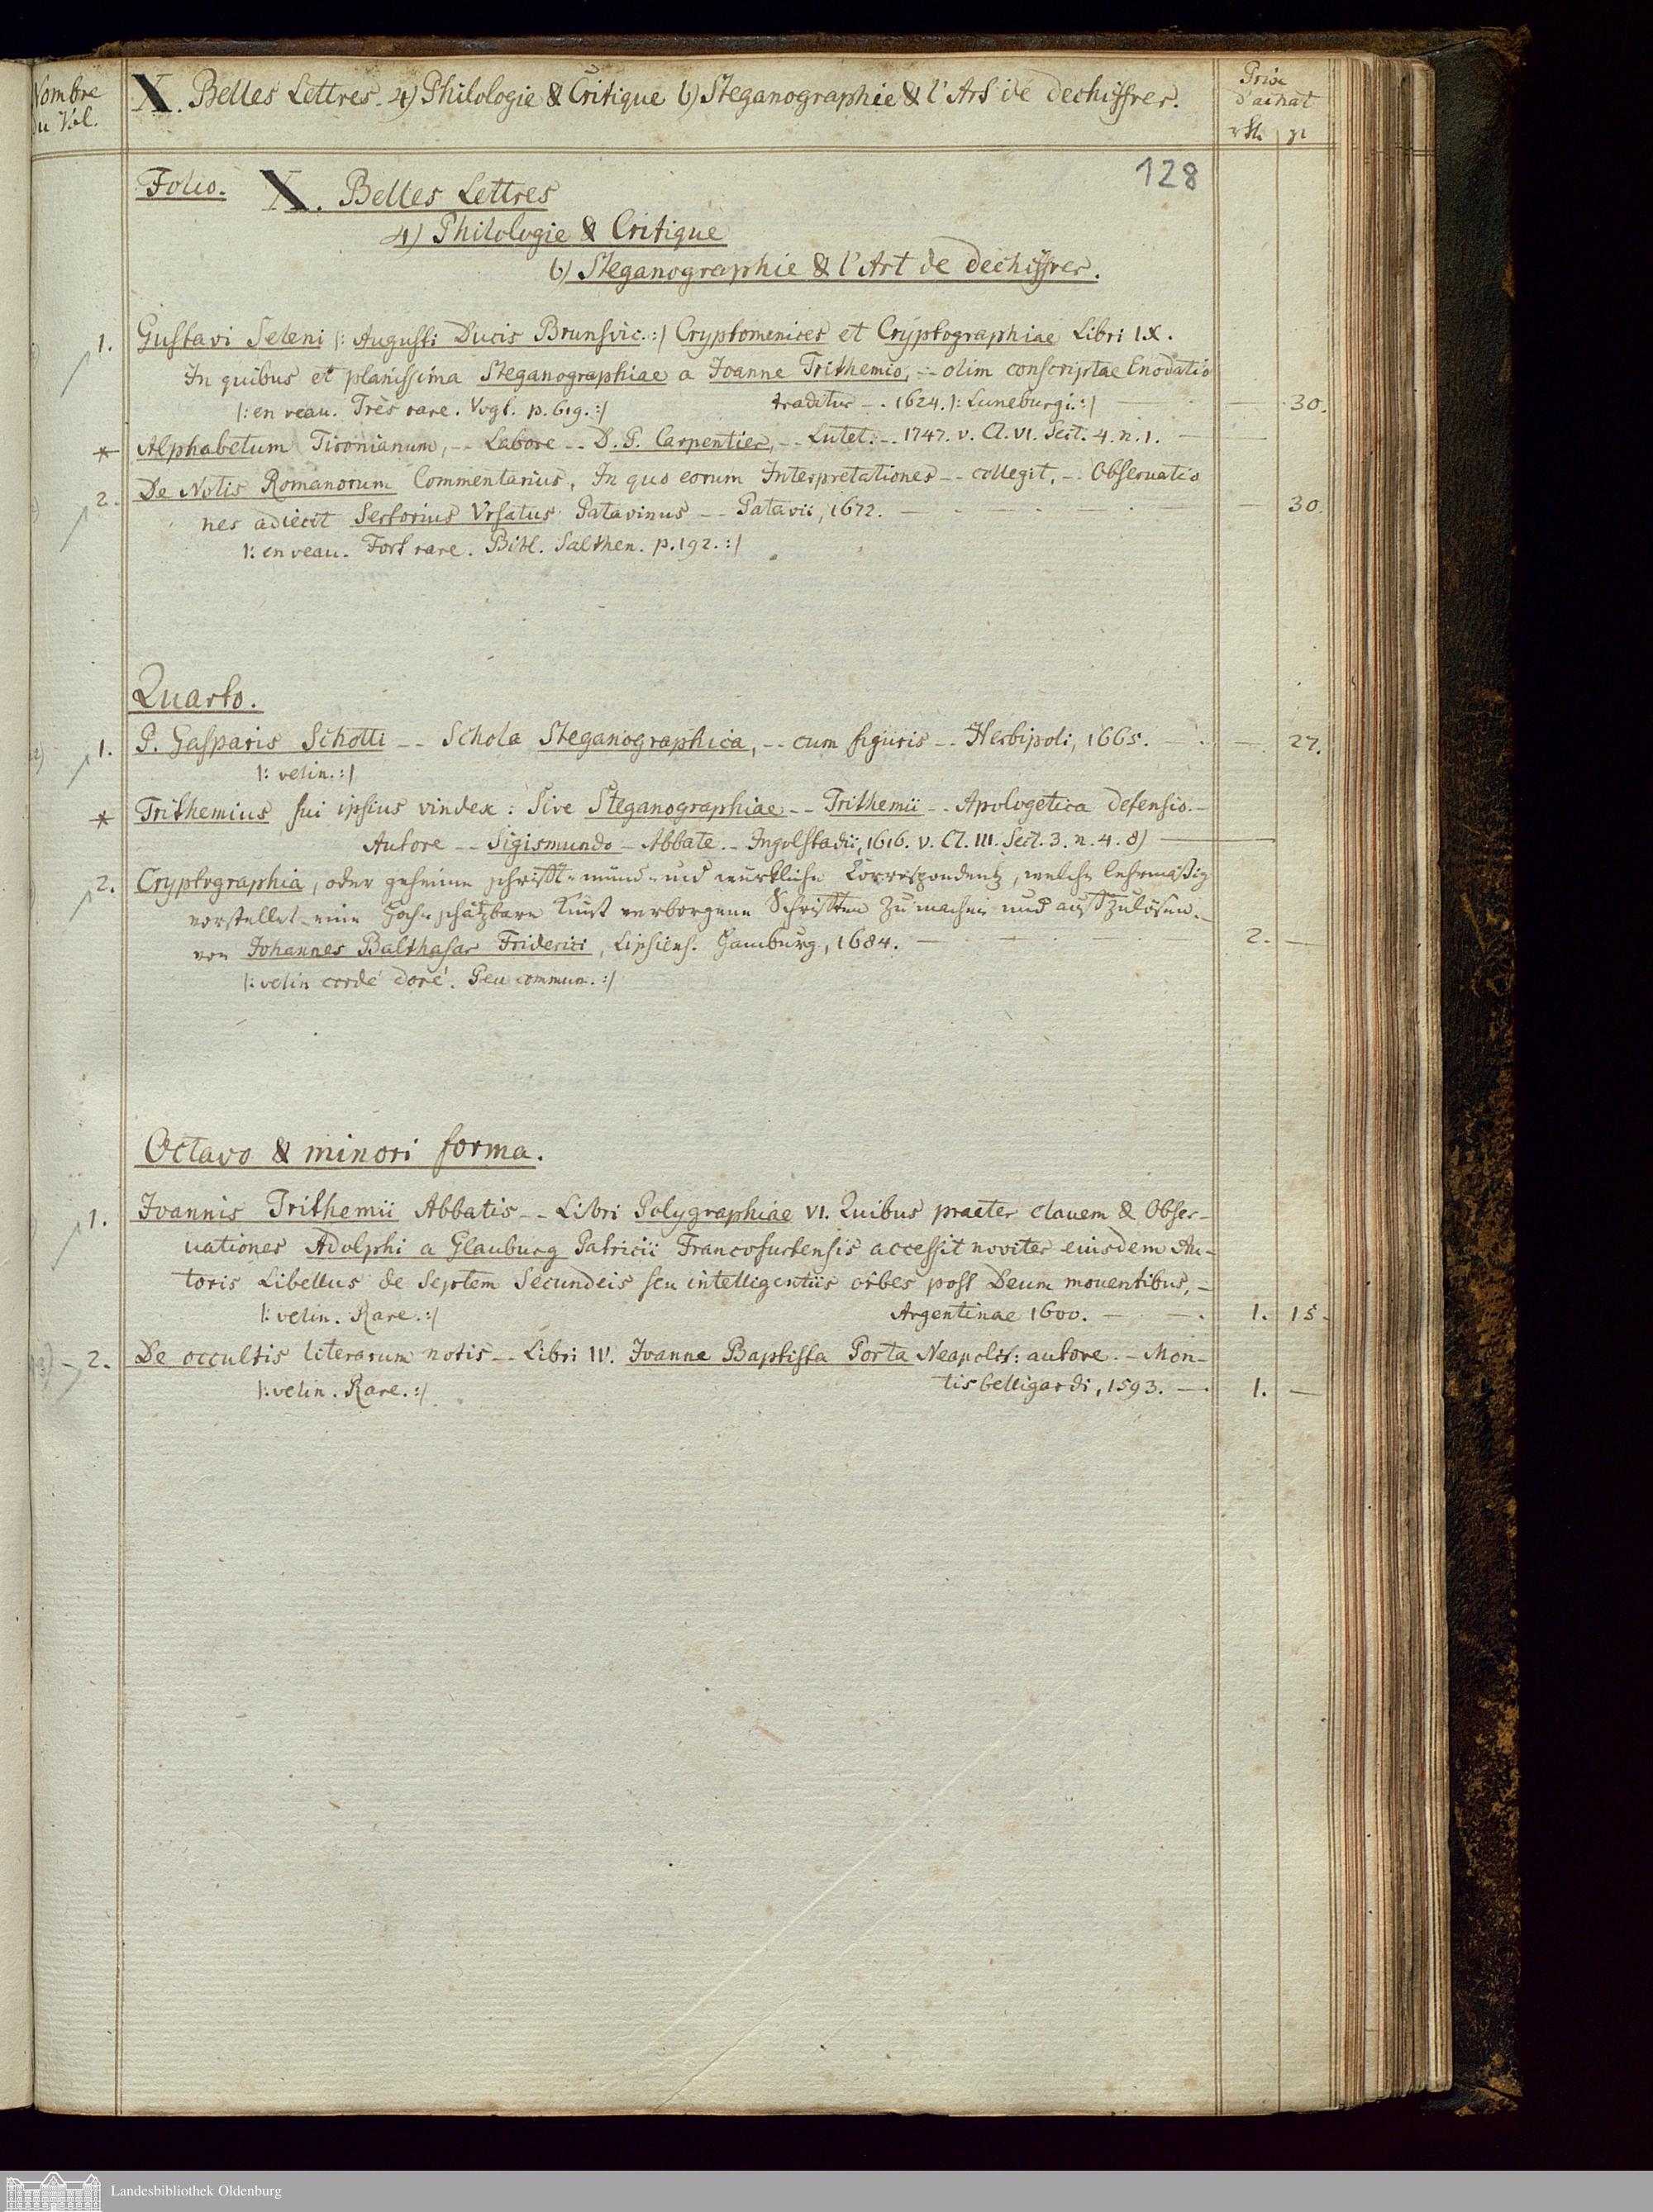 Nombre
du Vol.
X. Belles Lettres. 4) Philologie & Critique b) Steganographie & l'Art de dechiffrer.
Prix
d'achat
rth. gr
128
Folio. X. Belles Lettres
4) Philologie & Critique
b) Steganographie & l'Art de dechiffrer.
1. Gustavi Seleni |: Augusti Ducis Brunsvic. :| Cryptomenices et Cryptographiae Libri IX.
In quibus et planissima Steganographiae a Joanne Trithemio, -- olim conscriptae Enodatio
|: en veau. Très rare. Vogt. p. 619. :| traditur -. 1624. |: Luneburgi. :| — 30.
* Alphabetum Tironianum, -- Labore -- D. P. Carpentier, -- Lutet. -. 1747. v. Cl. VI. Sect. 4. n. 1. —
2. De Notis Romanorum Commentarius, In quo eorum Interpretationes -- collegit, -. Obseruatio
nes adiecit Sertorius Vrsatus Patavinus -- Patavii, 1672. — 30.
|: en veau. Fort rare. Bibl. Salthen. p. 192. :|
Quarto.
1. P. Gasparis Schotti -- Schola Steganographica, -- cum figuris -- Herbipoli, 1665. — 27.
|: velin. :|
* Trithemius sui ipsius vindex: Sive Steganographiae -- Trithemii -- Apologetica defensio. -
Autore -- Sigismundo - Abbate. - Ingolstadii, 1616. v. Cl. III. Sect. 3. n. 4. 8) —
2. Cryptographia, oder geheime schrifft- münd- und würkliche Correspondentz, welche lehrmäßig
vorstellet eine hoch-schätzbare Kunst verborgene Schrifften zu machen und auffzulösen. -
von Johannes Balthasar Friderici, Lipsiens. Hamburg, 1684. — 2. —
|: velin cordé doré. Peu commun. :|
Octavo & minori forma.
1. Joannis Trithemii Abbatis -- Libri Polygraphiae VI. Quibus praeter clauem & Obser-
uationes Adolphi a Glauburg Patricii Francofurtensis accessit noviter eiusdem Au-
toris Libellus de Septem Secundeis seu intelligentiis orbes post Deum mouentibus, -
|: velin. Rare. :| Argentinae 1600. — 1. 15.
2. De occultis literarum notis -- Libri IV. Joanne Baptista Porta Neapolit: autore. - Mon-
|: velin. Rare. :| tisbelligardi, 1593. — 1. —
Landesbibliothek Oldenburg